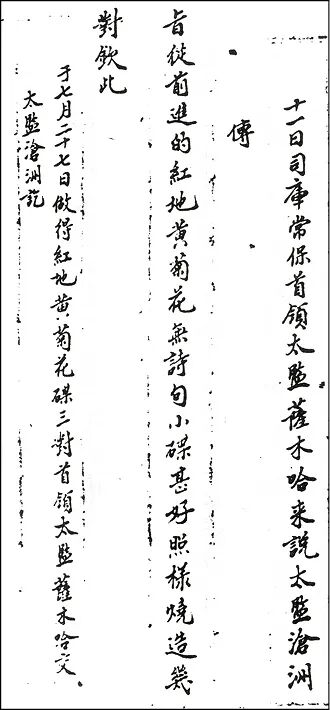 十一日司庫常保首領太監薩木哈来説太監滄洲
傳
旨從前進的紅地黄菊花無詩句小碟甚好照樣燒造幾
對欽此
于七月二十七日做得紅地黄菊花碟三對首領太監薩木哈交
太監滄洲訖